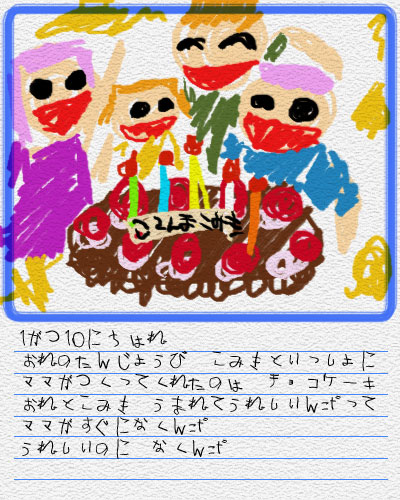 1がつ10にち はれ
おれのたんじょうび こみもといっしょに
ママがつくってくれたのは チョコケーキ
おれとこみも うまれてうれしいんポって
ママがすぐになくんポ
うれしいのに なくんポ